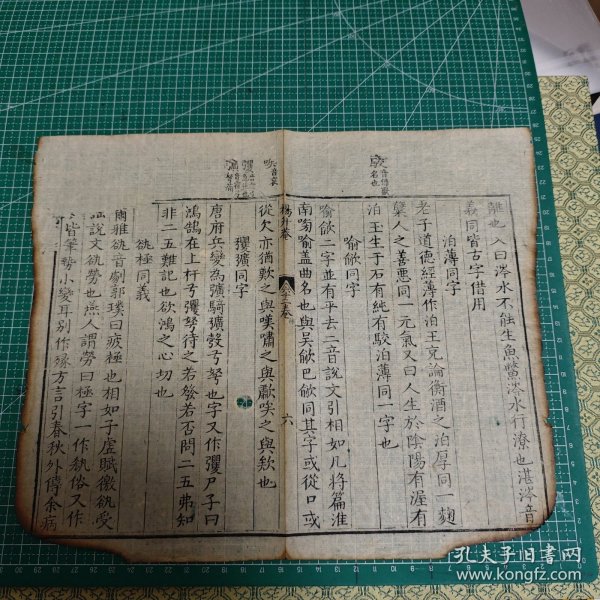 雖也入曰涔水不能生魚鱉涔水行潦也湛涔音
義同皆古字借用
泊薄同字
老子道德經薄作泊王充論衡酒之泊厚同一麴
糵人之善惡同一元氣又曰人生於陰陽有渥有
泊玉生于石有純有駁泊薄同一字也
喻歈同字
喻歈二字並有平去二音說文引相如凡將篇淮
南宋喻蓋曲名也與吳歈巴歈同其字或從口或
楊升卷
六
從欠亦猶歎之與嘆嘯之與歗唉之與欸也
彏彍同字
唐府兵變為彍騎彍彀弓弩也字又作彏尸子曰
鴻鵠在上扞弓彏弩待之若發若否問二五弗知
非二五難記也欲鴻之心切也
㕁極同義
爾雅㕁音劇郭璞曰疲極也相如子虛賦徼㕁受
詘說文㕁勞也燕人謂勞曰極字一作㕁俗又作
皆筆勢小變耳別作殊方言引春秋外傳余病
孔夫子旧书网
www.kongfz.com